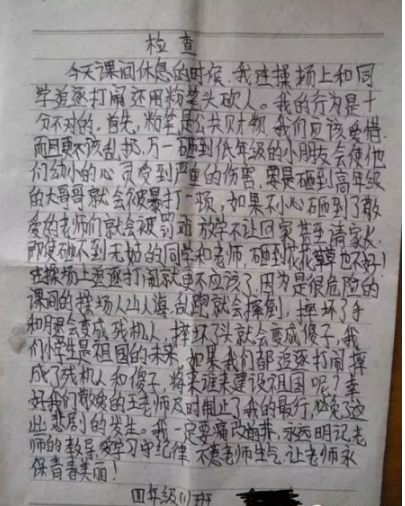 检查
今天课间休息的时候,我在操场上和同
学追逐打闹还用粉笔头砍人。我的行为是十
分不对的。首先,粉笔是公共财物,我们应该爱惜,
而且更不该乱扔,万一砸到低年级的小朋友会使他
们幼小的心灵受到严重的伤害,要是砸到高年级
的大哥哥就会被暴打一顿,如果不小心砸到了敬
爱的老师们就会被罚站 放学不让回家 甚至请家长
即使砸不到无辜的同学和老师,砸到花花草草也不好!
在操场上追逐打闹就更不应该了,因为是很危险的
课间的操场人山人海,乱跑就会摔倒,摔坏了手
和腿会变成残机人,摔坏了头就会变成傻子,我
们小学生是祖国的未来,如果我们都追逐打闹摔
成了残机人和傻子,将来谁来建设祖国呢?幸
好我们敬爱的王老师及时制止了我的暴行,避免了这
出悲剧的发生。我一定要痛改前非,永远明记老
师的教导,爱学习守纪律,不惹老师生气,让老师永
保青春美丽!
四年级(1)班